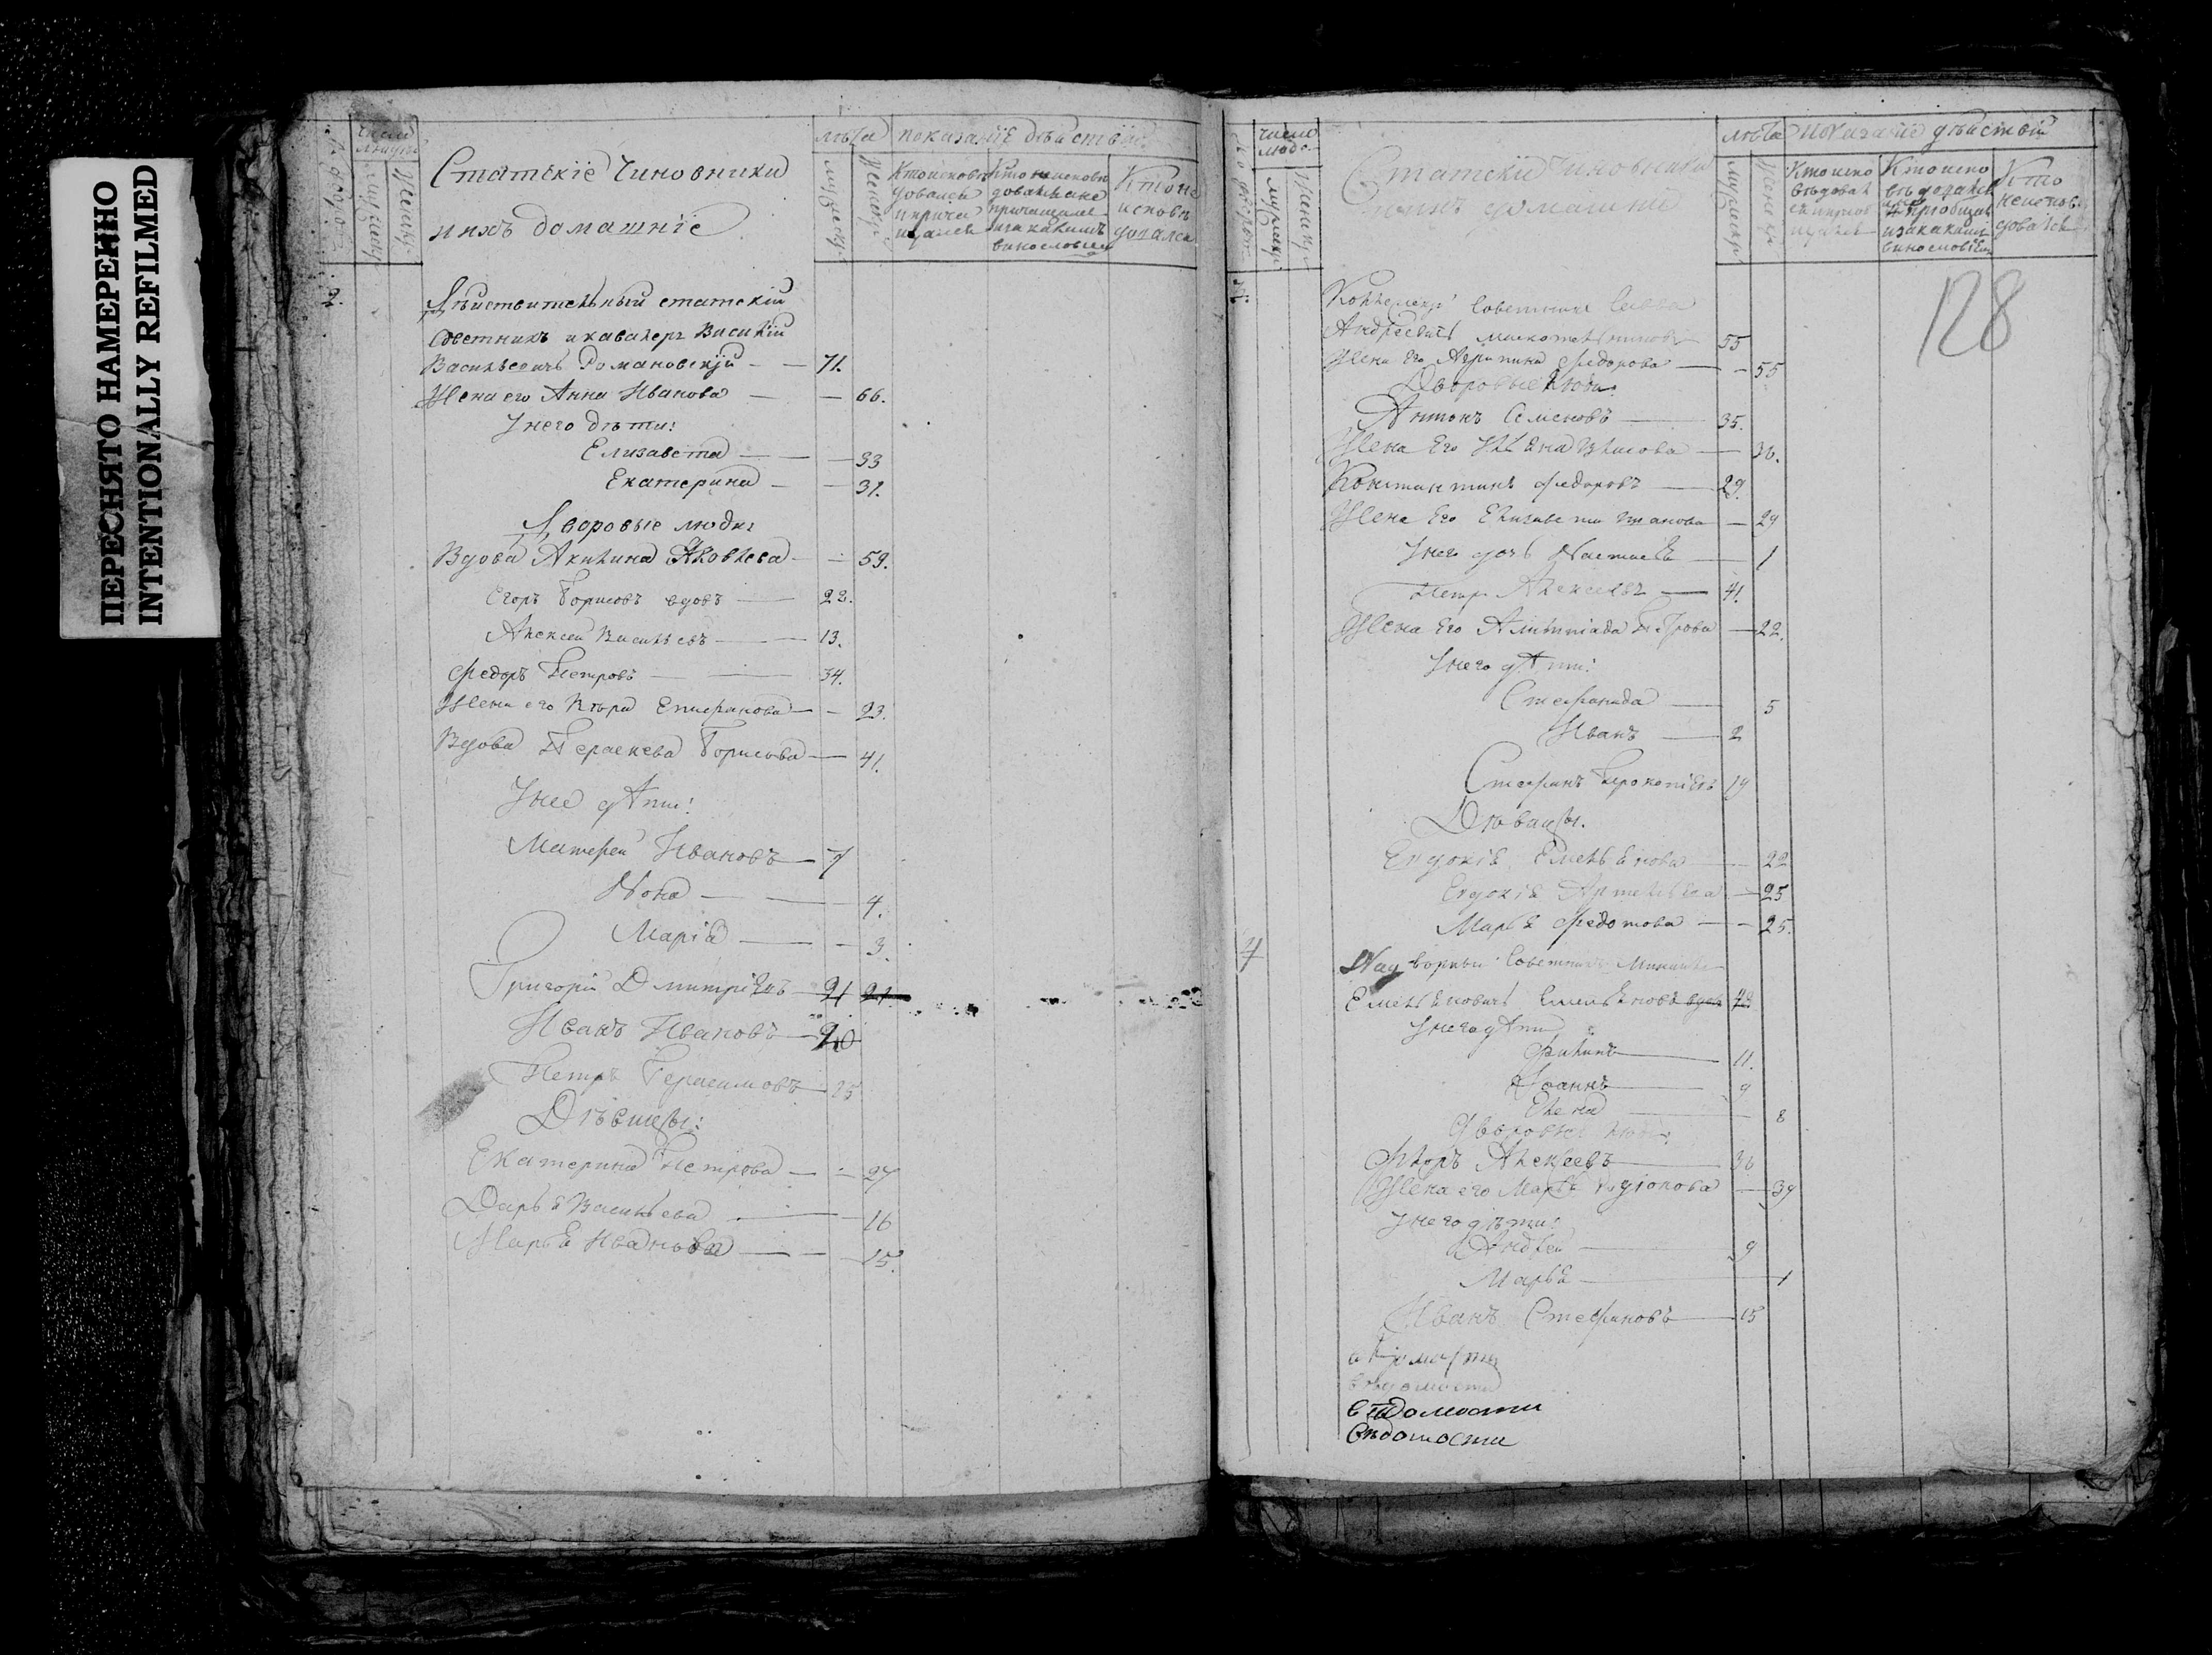 ПЕРЕСНЯТО НАМЕРЕННО
INTENTIONALLY REFILMED
Число
людей
мужеск
женск
Статскіе чиновники
ихъ домашніе
лѣта
показаніе дѣйствій
мужеск.
женск.
Кто исповѣ
довался
и прича
щался
Кто исповѣ
довался а не
причащался
и за какимъ
винословіем
Кто не
исповѣ
довался
2.
Дѣйствительный статскій
Советникъ и кавалеръ Василій
Васильевичь Романовскій — 71.
Жена его Анна Иванова — 66.
У него дѣти:
Елизавета — 33
Екатерина — 31.
Дворовые люди:
Вдова Акилина Яковлева — 59.
Егоръ Борисовъ вдовъ — 22.
Алексей Васильевъ — 13.
Федоръ Петровъ — 34.
Жена его Вѣра Епифанова — 23.
Вдова Параскева Борисова — 41.
У нее дѣти:
Матфей Ивановъ — 7
Нона — 4.
Марія — 3.
Григорій Дмитріевъ — 21 21
Иванъ Ивановъ — 20
Петръ Герасимовъ 25
Дѣвицы:
Екатерина Петрова — 27
Дарья Васильева — 16
Марья Иванова — 15.
Число
люде
мужеск
женск
Статскіи чиновники
ихъ домашніе
лѣта
показаніе дѣйствій
мужеск
женск
Кто испо
вѣдовал
ся и приоб
щался
Кто испо
вѣдовался
а не приобщал
и за какимъ
винословіем
Кто
не испов
довался
128
3.
Коллежск Советникъ Савва
Андреевичь 55
Жена Его Агрипина Федорова — 55
Дворовые Люди:
Антонъ Семеновъ — 35.
Жена Его Ульяна Власова — 36.
Константинъ Федоровъ — 29.
Жена Его Елизавета Иванова — 29
У него дочь Настасья — 1
Петръ Алексеевъ — 41.
Жена Его Алимпіада Петрова — 22.
У него дѣти:
Стефанида — 5
Иванъ — 2
Стефанъ Прокопіевъ 19
Дѣвицы.
Евдокія Емельянова — 22
Евдокія Артемьева — 25
Марья Федотова — 25.
4
Надворный Советникъ
Емельяновичь Емельяновъ вдов 43
У него дѣти
Филипъ — 11.
Іоаннъ — 9
Елена — 8
Дворовые люди:
Флоръ Алексеевъ — 36
Жена его Марья Родіонова — 39
У него дѣти:
Андрей — 9
Марья — 1
Иванъ Стефановъ — 15
вѣдомости
вѣдомости
вѣдомости